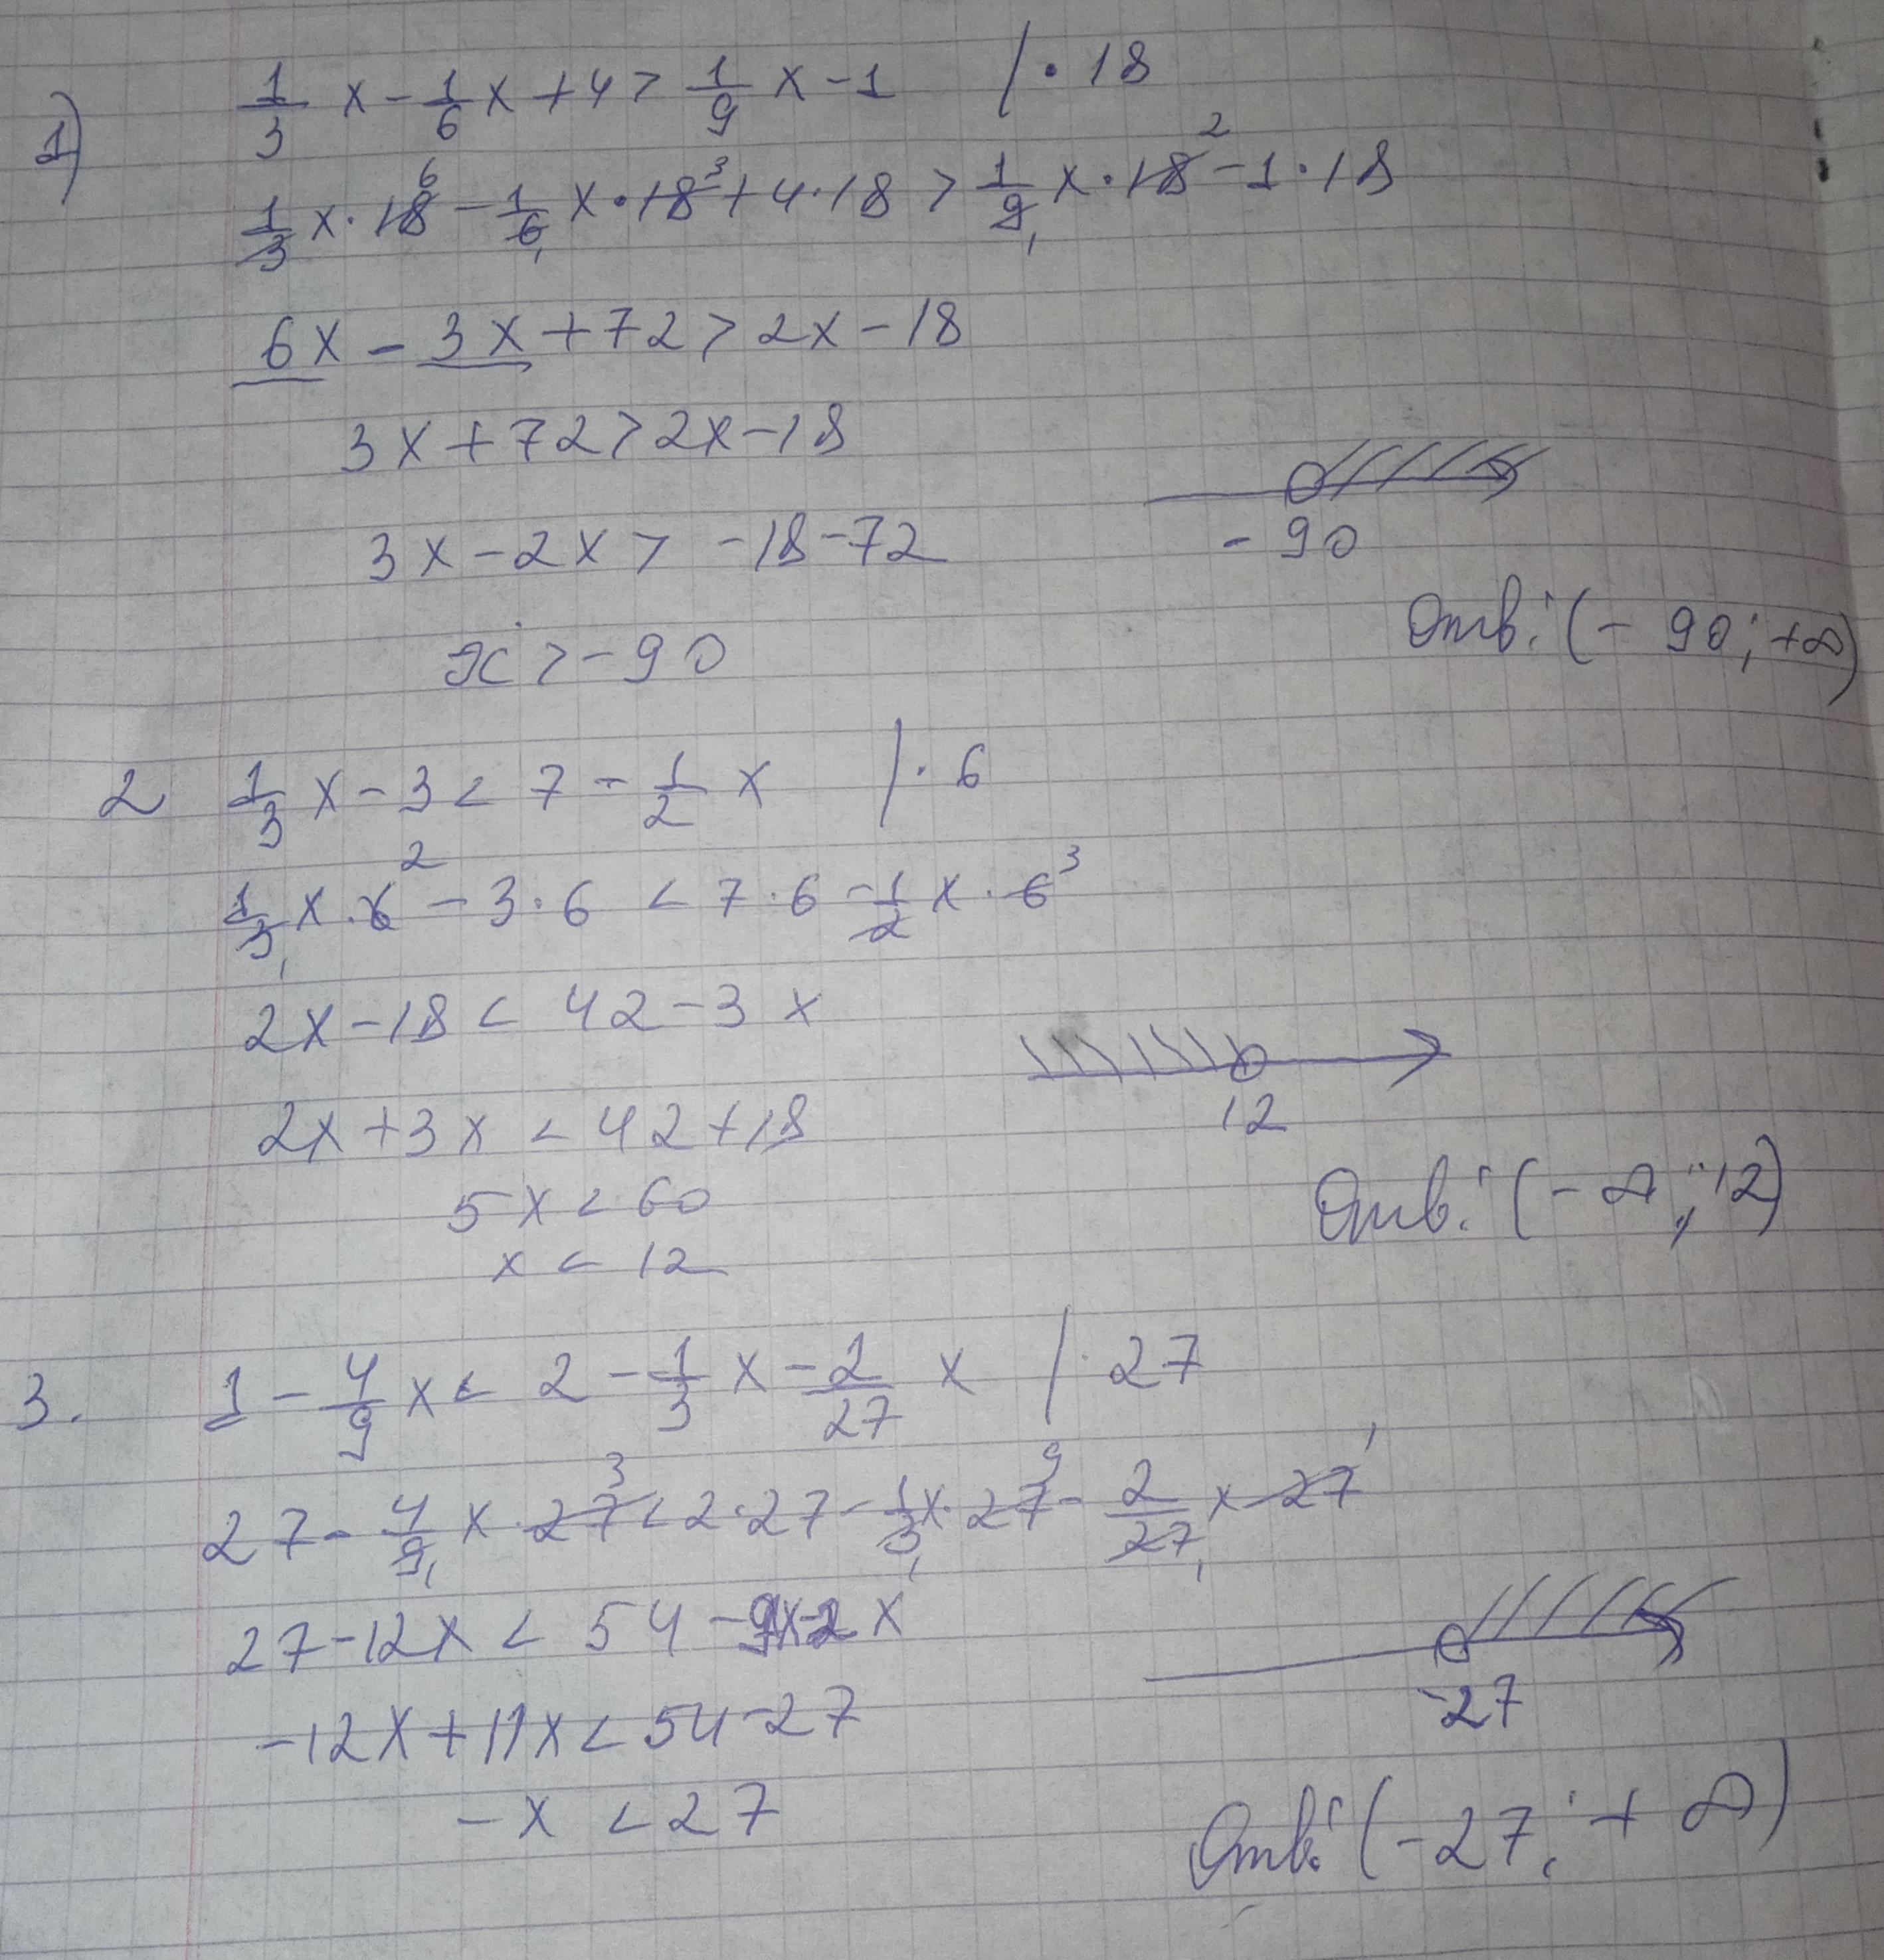 1) 1/3 x - 1/6 x + 4 > 1/9 x - 1 / · 18
1/3 x · 18 6 - 1/6 1 x · 18 3 + 4 · 18 > 1/9 1 x · 18 2 - 1 · 18
6x - 3x + 72 > 2x - 18
3x + 72 > 2x - 18
3x - 2x > -18 - 72
-90
x > -90
Отв: (-90; +∞)
2 1/3 x - 3 < 7 - 1/2 x / · 6
1/3 1 x · 6 2 - 3 · 6 < 7 · 6 - 1/2 x · 6 3
2x - 18 < 42 - 3x
2x + 3x < 42 + 18
12
5x < 60
Отв: (-∞; 12)
x < 12
3. 1 - 4/9 x < 2 - 1/3 x - 2/27 x / · 27
27 - 4/9 1 x · 27 3 < 2 · 27 - 1/3 1 x · 27 9 - 2/27 1 x · 27 1
27 - 12x < 54 - 9x - 2x
-12x + 11x < 54 - 27
-27
-x < 27
Отв: (-27; +∞)